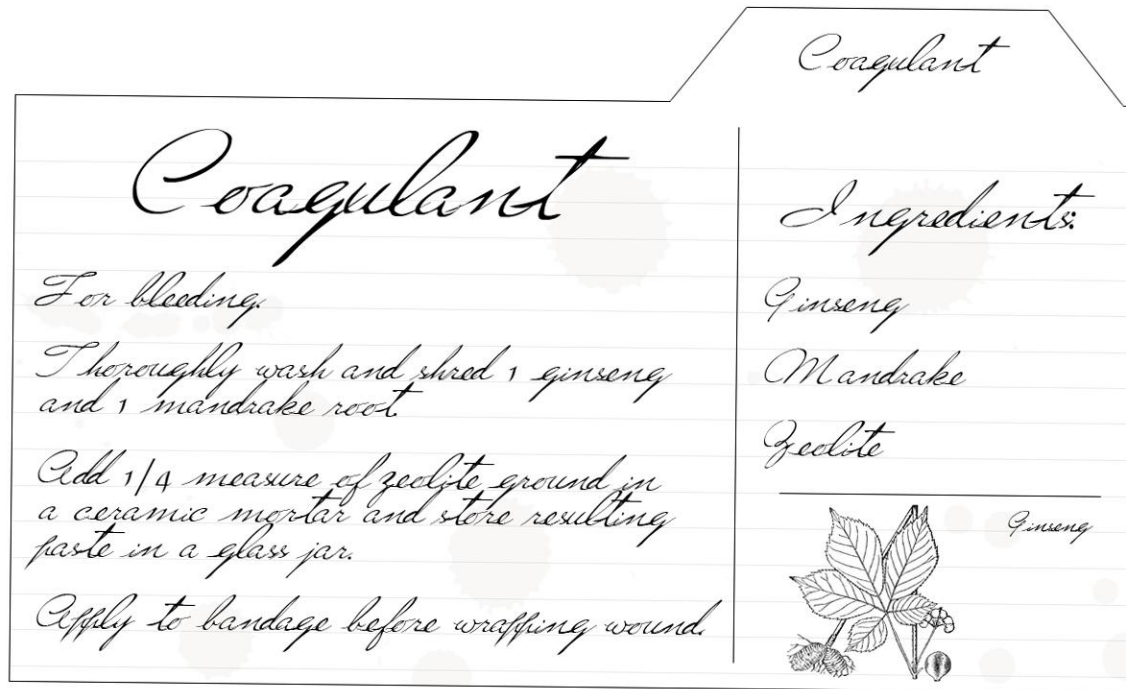 Coagulant
Coagulant
For bleeding.
Thoroughly wash and shred 1 ginseng
and 1 mandrake root.
Add 1/4 measure of zeolite ground in
a ceramic mortar and store resulting
paste in a glass jar.
Apply to bandage before wrapping wound.
Ingredients:
Ginseng
Mandrake
Zeolite
Ginseng